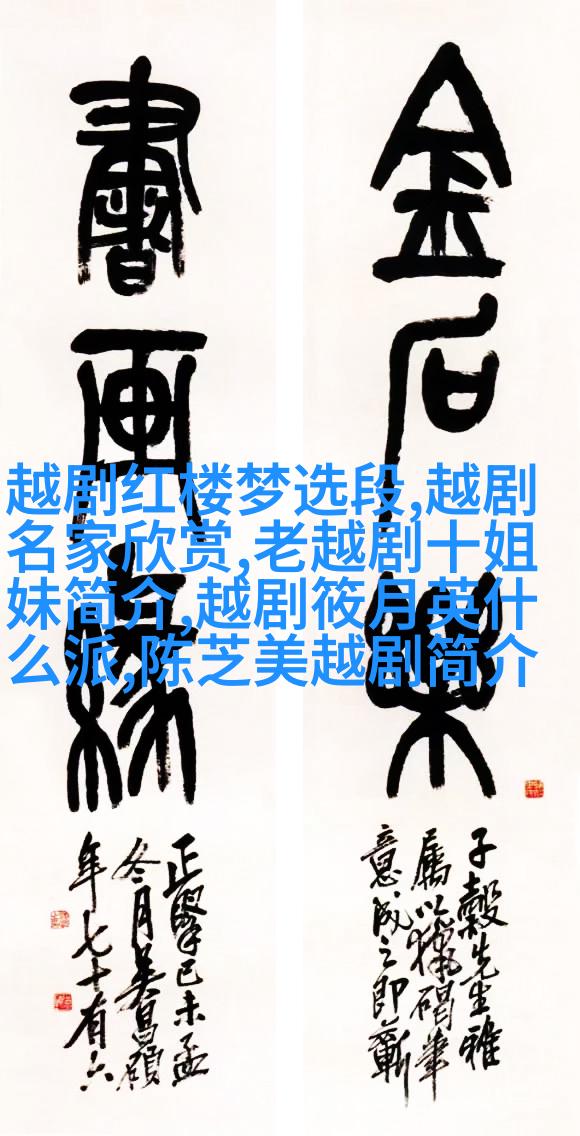 金石樂
書画緣
子穀先生雅
屬以獵碣筆
意成之即蘄
正擘己未孟
冬月吴昌碩
年七十有六
越剧红楼梦选段,越剧
名家欣赏,老越剧十姐
妹简介,越剧筱月英什
么派,陈芝美越剧简介